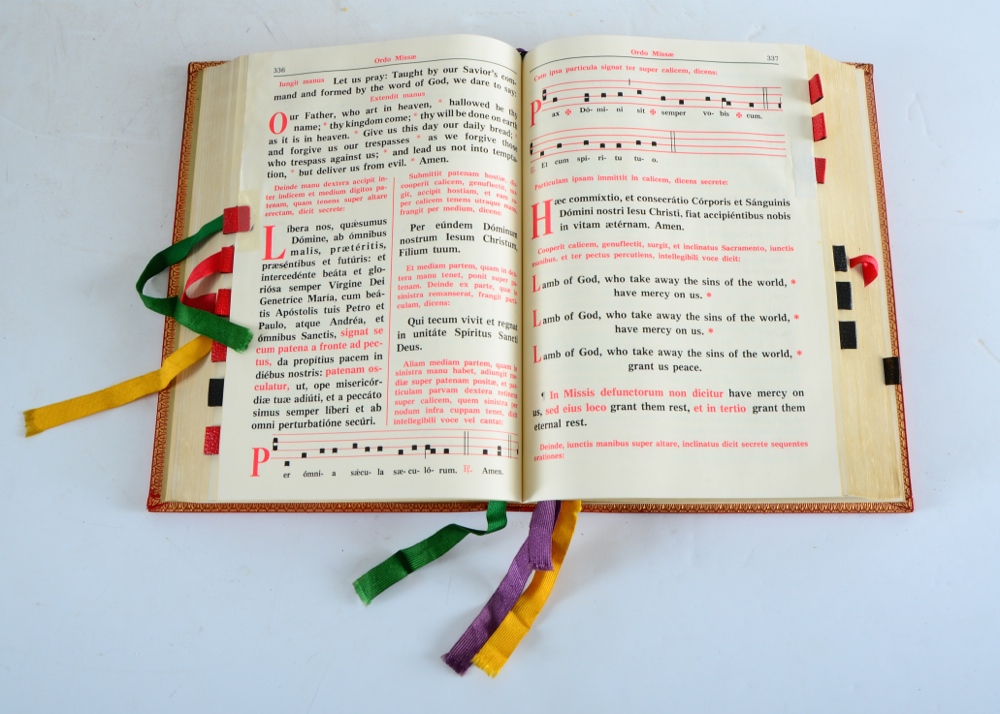 336
Ordo Missæ
Iungit manus Let us pray: Taught by our Savior's com-
mand and formed by the word of God, we dare to say:
Extendit manus
Our Father, who art in heaven, * hallowed be thy
name; * thy kingdom come; * thy will be done on earth
as it is in heaven. * Give us this day our daily bread; *
and forgive us our trespasses * as we forgive those
who trespass against us; * and lead us not into tempta-
tion, * but deliver us from evil. * Amen.
Deinde manu dextera accipit in-
ter indicem et medium digitos pa-
tenam, quam tenens super altare
erectam, dicit secrete:
Líbera nos, quǽsumus
Dómine, ab ómnibus
malis, prætéritis,
præséntibus et futúris: et
intercedénte beáta et glo-
riósa semper Vírgine Dei
Genetríce María, cum beá-
tis Apóstolis tuis Petro et
Paulo, atque Andréa, et
ómnibus Sanctis, signat se
cum patena a fronte ad pec-
tus, da propítius pacem in
diébus nostris: patenam os-
culatur, ut, ope misericór-
diæ tuæ adiúti, et a peccáto
simus semper líberi et ab
omni perturbatióne secúri.
Submittit patenam hostiæ,
cooperit calicem, genuflectit,
git, accipit hostiam, et eam
per calicem tenens utraque manu
frangit per medium, dicens:
Per eúndem Dóminum
nostrum Iesum Christum
Fílium tuum.
Et mediam partem, quam in
tera manu tenet, ponit super pa-
tenam. Deinde ex parte, quæ in
sinistra remanserat, frangit parti-
culam, dicens:
Qui tecum vivit et regnat
in unitáte Spíritus Sancti
Deus.
Aliam mediam partem, quam in
sinistra manu habet, adiungit
diæ super patenam positæ, et par-
ticulam parvam dextera retinens
super calicem, quem sinistra per
nodum infra cuppam tenet, dicit
intellegibili voce vel cantat:
Per ómni- a sǽcu- la sæ- cu- ló- rum. ℟. Amen.
Ordo Missæ
337
Cum ipsa particula signat ter super calicem, dicens:
Pax ✠ Dó- mi- ni sit ✠ semper vo- bis ✠ cum.
℟. Et cum spí- ri- tu tu- o.
Particulam ipsam immittit in calicem, dicens secrete:
Hæc commíxtio, et consecrátio Córporis et Sánguinis
Dómini nostri Iesu Christi, fiat accipiéntibus nobis
in vitam ætérnam. Amen.
Cooperit calicem, genuflectit, surgit, et inclinatus Sacramento, iunctis
manibus, et ter pectus percutiens, intellegibili voce dicit:
Lamb of God, who take away the sins of the world, *
have mercy on us. *
Lamb of God, who take away the sins of the world, *
have mercy on us. *
Lamb of God, who take away the sins of the world, *
grant us peace.
¶ In Missis defunctorum non dicitur have mercy on
us, sed eius loco grant them rest, et in tertio grant them
eternal rest.
Deinde, iunctis manibus super altare, inclinatus dicit secrete sequentes
orationes: